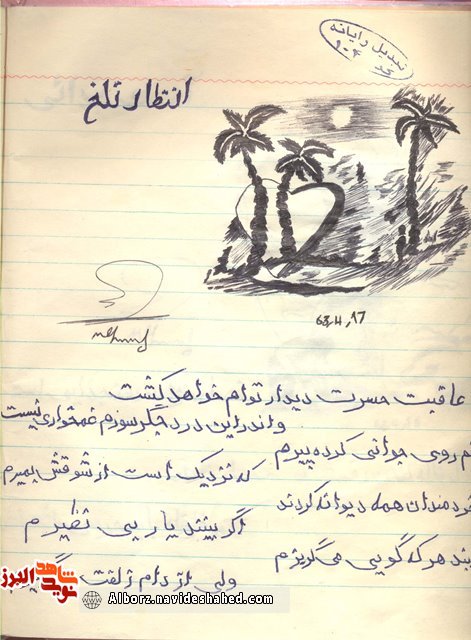 تبدیل رایانه
شد
انتظار تلخ
63,11,17
عاقبت حسرت دیدار توام خواهد کشت
و اندر این درد جگر سوزم غمخواری نیست
م روی جوانی کرده پیرم
که نزدیک است از شوقش بمیرم
خردمندان همه دیوانه گردند
اگر بینند یار بی نظیرم
بند هر که گویی می گریزم
ولی از دام زلفت
نوید شاهد البرز
Alborz.navideshahed.com